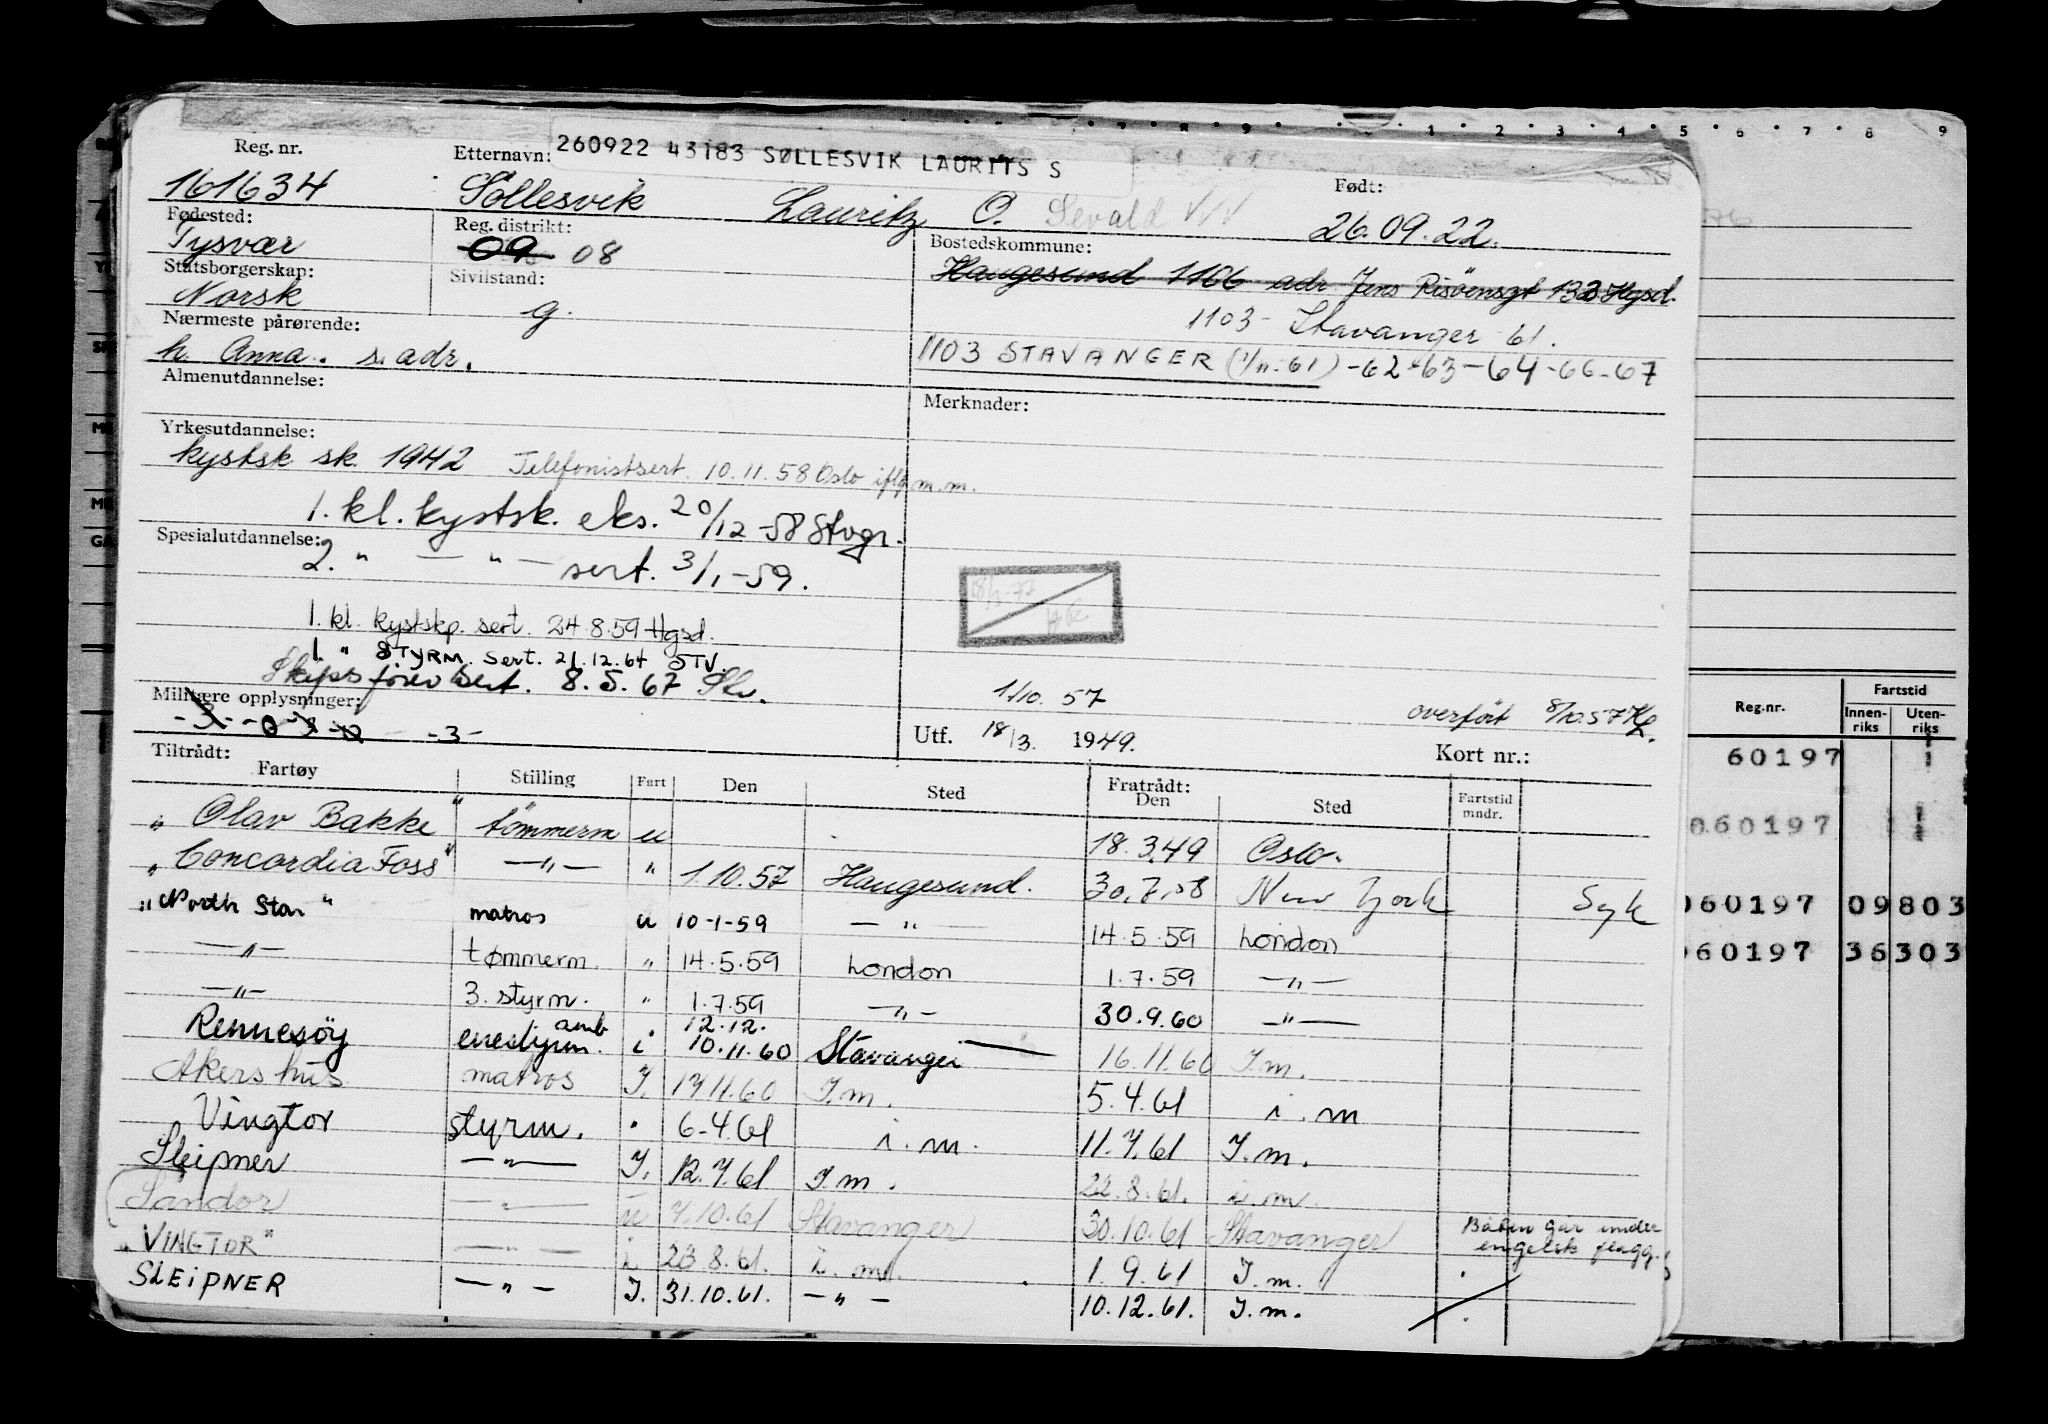 Reg. nr. Etternavn: 260922 43183 SØLLESVIK LAURITS S Født:
161634 Söllesvik Lauritz O. Sevald 26.09.22.
Fødested: Reg. distrikt: Bostedskommune:
Tysvær 09 08 Haugesund 1106 adr Jens Risöensgt 132 Hgsd.
Statsborgerskap: Sivilstand:
Norsk g. 1103 - Stavanger 61.
Nærmeste pårørende:
h. Anna. s. adr. 1103 STAVANGER (1/11-61) -62-63-64-66-67
Almenutdannelse: Merknader:
Yrkesutdannelse:
kystsk sk. 1942 Telefonistsert. 10.11.58 Oslo iflg m.m.
1. kl. kystsk. eks. 20/12-58 Stvgr.
Spesialutdannelse:
2. " — " — sert. 3/1-59.
1. kl. kystskp. sert. 24.8.59 Hgsd.
1. " STYRM. sert. 21.12.64 STV.
Skipsförersert. 8.5.67 Stv.
Militære opplysninger: 1/10.57 overfört 8/10.57
-3-
Utf. 18/3. 1949. Kort nr.:
Tiltrådt: Fratrådt:
Fartøy Stilling Fart Den Sted Den Sted Fartstid mndr.
" Olav Bakke " tömmerm u 18.3.49 Oslo.
" Concordia Foss " —"— " 1.10.57 Haugesund. 30.7.58 New York Syk
" North Star " matros u 10-1-59 —"— 14.5.59 London
—"— tømmerm. " 14.5.59 London 1.7.59 —"—
—"— 3. styrm. " 1.7.59 —"— 30.9.60 —"—
Rennesöy enestyrm. amb i 12.12. 10.11.60 Stavanger 16.11.60 I.m.
Akershus matros I. 17.11.60 I.m. 5.4.61 i.m
Vingtor styrm. " 6-4.61 i.m. 11.7.61 I.m.
Sleipner —"— I. 12.7.61 I.m. 22.8.61. i.m.
Sandor —"— u 7.10.61 Stavanger 30.10.61 Stavanger Båten går under engelsk flagg.
"VINGTOR" —"— i 23.8.61. i.m. 1.9.61 I.m.
SLEIPNER —"— I. 31.10.61. —"— 10.12.61. I.m.
Reg.nr. Fartstid
Innen-riks Uten-riks
60197
060197
060197 09803
060197 36303